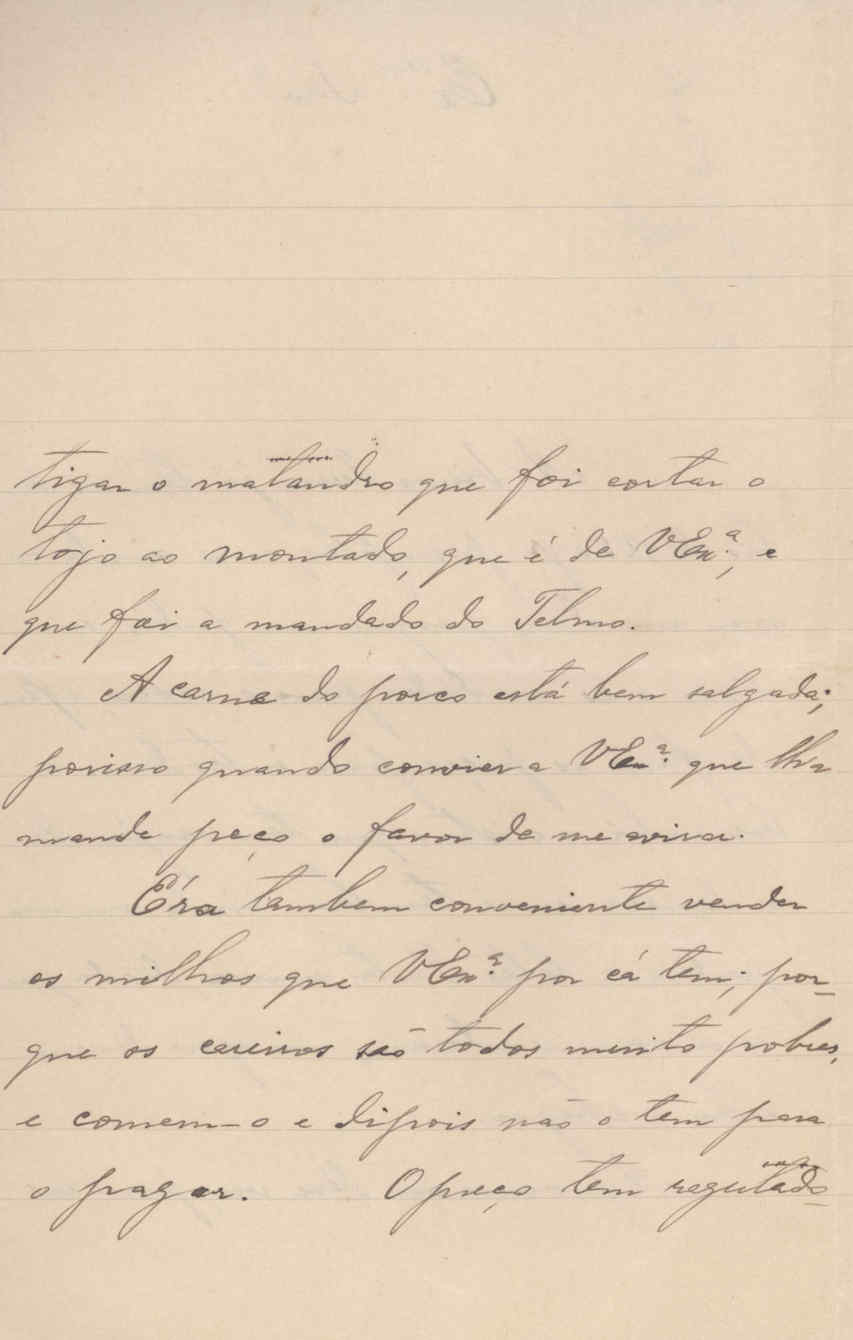 tigar o malandro que foi cortar o
tojo ao montado, que é de VExª., e
que foi a mandado do Telmo.
A carne do porco está bem salgada;
porisso quando convier a VExª. que lha
mande peço o favor de me avisar.
Éra tambem conveniente vender
os milhos que VExª. por cá tem; por-
que os caseiros são todos muito pobres,
e comem-o e dipois não o tem para
o pagar. O preço tem regulado